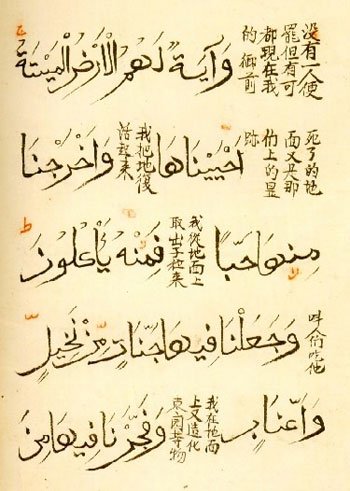 没有一人使罷但有可都現在我的御前 وَآيَةٌ لَهُمُ الْأَرْضُ الْمَيْتَةُ
死了的地面又是那伯上的显跡 اَحْيَيْنَاهَا 我把地復活起來 وَاَخْرَجْنَا
مِنْهَا حَبًّا 我從地面上取出子粒來 فَمِنْهُ يَاْكُلُونَ
叫人伯吃他 وَجَعَلْنَا فِيهَا جَنَّاتٍ مِّنْ نَخِيلٍ
وَاَعْنَابٍ 我在地面上又造化東園等物 وَفَجَّرْنَا فِيهَا مِنَ